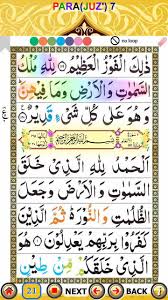 PARA(JUZ') 7
no loop
ذٰلِكَ الْفَوْزُ الْعَظِیْمُ لِلّٰهِ مُلْكُ
السَّمٰوٰتِ وَالْاَرْضِ وَمَا فِیْهِنَّ
وَهُوَ عَلٰی كُلِّ شَیْءٍ قَدِیْرٌ
اَلْحَمْدُ لِلّٰهِ الَّذِیْ خَلَقَ
السَّمٰوٰتِ وَالْاَرْضَ وَجَعَلَ
الظُّلُمٰتِ وَالنُّوْرَ ثُمَّ الَّذِیْنَ
كَفَرُوْا بِرَبِّهِمْ یَعْدِلُوْنَ هُوَ
الَّذِیْ خَلَقَكُمْ مِّنْ طِیْنٍ
21 NEXT BACK